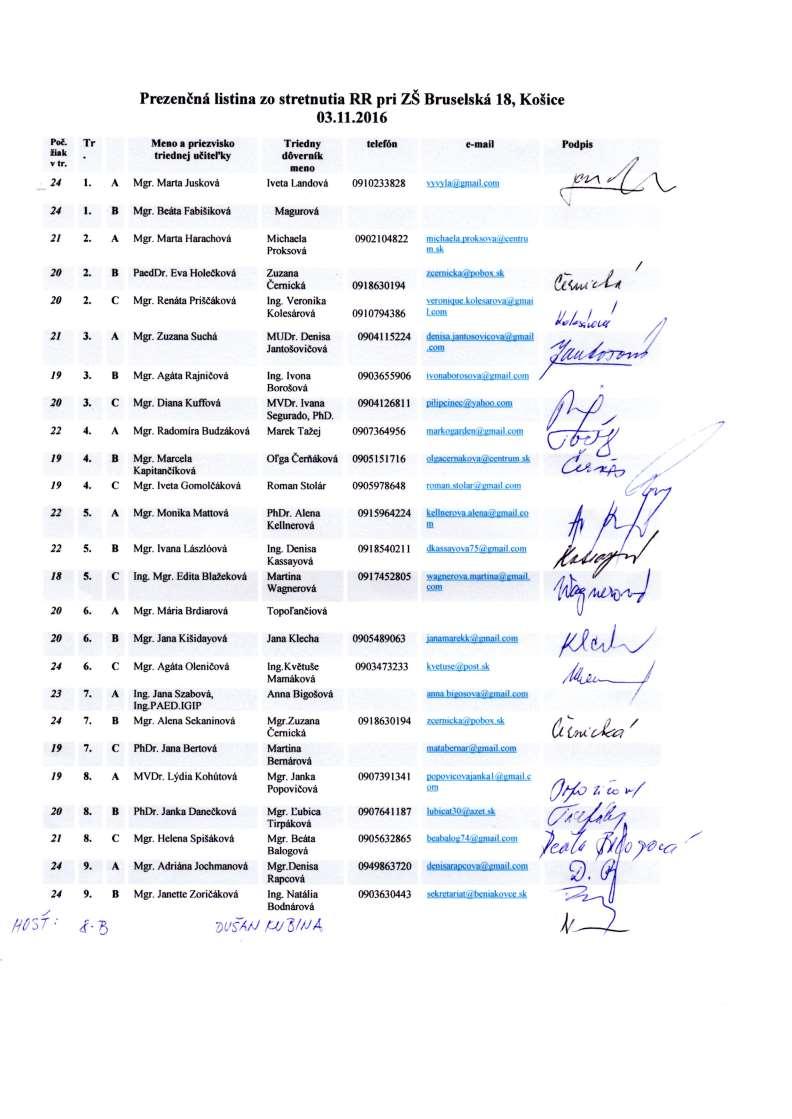 Prezenčná listina zo stretnutia RR pri ZŠ Bruselská 18, Košice
03.11.2016
Poč. žiak v tr. Tr . Meno a priezvisko triednej učiteľky Triedny dôverník meno telefón e-mail Podpis
24 1. A Mgr. Marta Jusková Iveta Landová 0910233828 vyvyla@gmail.com
24 1. B Mgr. Beáta Fabišiková Magurová
21 2. A Mgr. Marta Harachová Michaela Proksová 0902104822 michaela.proksova@centrum.sk
20 2. B PaedDr. Eva Holečková Zuzana Černická 0918630194 zcernicka@pobox.sk Černická
20 2. C Mgr. Renáta Priščáková Ing. Veronika Kolesárová 0910794386 veronique.kolesarova@gmail.com Kolesárová
21 3. A Mgr. Zuzana Suchá MUDr. Denisa Jantošovičová 0904115224 denisa.jantosovicova@gmail.com
19 3. B Mgr. Agáta Rajničová Ing. Ivona Borošová 0903655906 ivonaborosova@gmail.com
20 3. C Mgr. Diana Kuffová MVDr. Ivana Segurado, PhD. 0904126811 pilipcinec@yahoo.com
22 4. A Mgr. Radomíra Budzáková Marek Tažej 0907364956 markogarden@gmail.com
19 4. B Mgr. Marcela Kapitančíková Oľga Čerňáková 0905151716 olgacernakova@centrum.sk
19 4. C Mgr. Iveta Gomolčáková Roman Stolár 0905978648 roman.stolar@gmail.com
22 5. A Mgr. Monika Mattová PhDr. Alena Kellnerová 0915964224 kellnerova.alena@gmail.com
22 5. B Mgr. Ivana Lászlóová Ing. Denisa Kassayová 0918540211 dkassayova75@gmail.com
18 5. C Ing. Mgr. Edita Blažeková Martina Wagnerová 0917452805 wagnerova.martina@gmail.com Wagnerová
20 6. A Mgr. Mária Brdiarová Topoľančiová
20 6. B Mgr. Jana Kišidayová Jana Klecha 0905489063 janamarekk@gmail.com
24 6. C Mgr. Agáta Oleničová Ing.Květuše Mamáková 0903473233 kvetuse@post.sk
23 7. A Ing. Jana Szabová, Ing.PAED.IGIP Anna Bigošová anna.bigosova@gmail.com
24 7. B Mgr. Alena Sekaninová Mgr.Zuzana Černická 0918630194 zcernicka@pobox.sk Černická
19 7. C PhDr. Jana Bertová Martina Bernárová matabernar@gmail.com
19 8. A MVDr. Lýdia Kohútová Mgr. Janka Popovičová 0907391341 popovicovajanka1@gmail.com
20 8. B PhDr. Janka Danečková Mgr. Ľubica Tirpáková 0907641187 lubicat30@azet.sk
21 8. C Mgr. Helena Spišáková Mgr. Beáta Balogová 0905632865 beabalog74@gmail.com Beata Balogová
24 9. A Mgr. Adriána Jochmanová Mgr.Denisa Rapcová 0949863720 denisarapcova@gmail.com
24 9. B Mgr. Janette Zoričáková Ing. Natália Bodnárová 0903630443 sekretariat@beniakovce.sk
HOSŤ: 8.B DUŠAN KUBINA